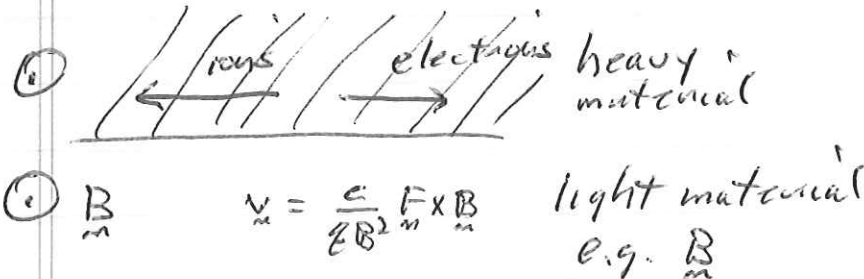 ions electrons heavy
material
B v = c/qB² F × B light material
e.g. B